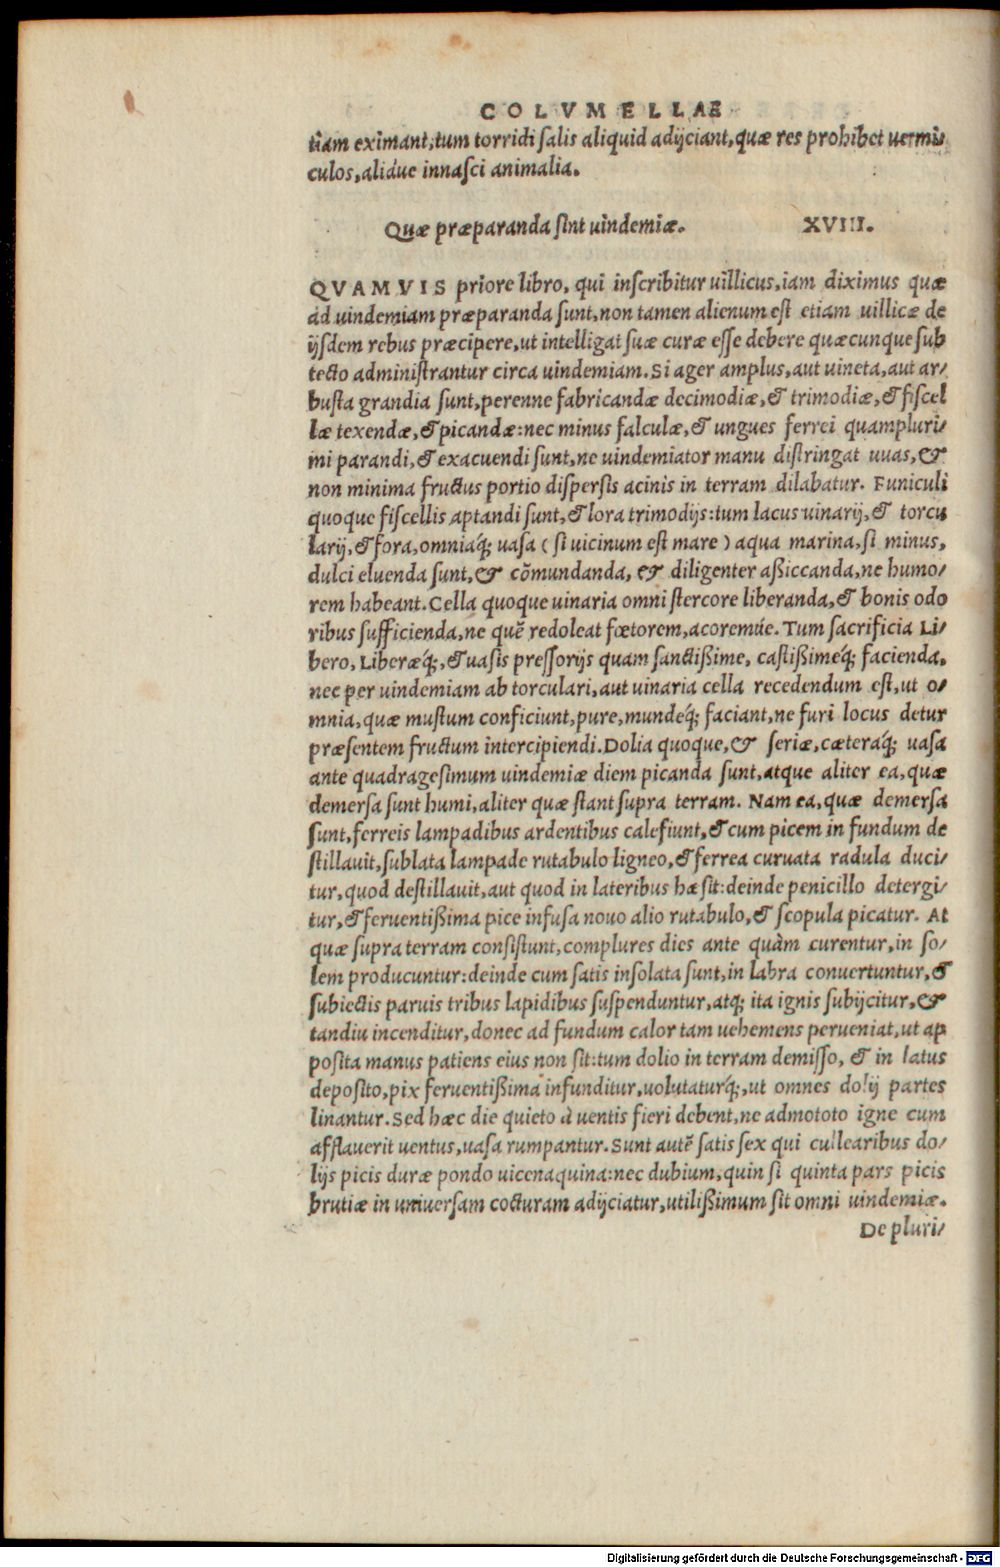 COLVMELLAE
tiam eximant,tum torridi salis aliquid adijciant,quæ res prohibet uermi⸗
culos,aliáue innasci animalia.
Quæ præparanda sint uindemiæ. XVIII.
QVAMVIS priore libro, qui inscribitur uillicus,iam diximus quæ
ad uindemiam præparanda sunt,non tamen alienum est etiam uillicæ de
ijsdem rebus præcipere,ut intelligat suæ curæ esse debere quæcunque sub
tecto administrantur circa uindemiam. Si ager amplus,aut uineta,aut ar⸗
busta grandia sunt,perenne fabricandæ decimodiæ,& trimodiæ,& fiscel
læ texendæ,& picandæ:nec minus falculæ,& ungues ferrei quampluri⸗
mi parandi,& exacuendi sunt,ne uindemiator manu distringat uuas,&
non minima fructus portio dispersis acinis in terram dilabatur. Funiculi
quoque fiscellis aptandi sunt,& lora trimodijs:tum lacus uinarij,& torcu
larij,& fora,omniaq́; uasa ( si uicinum est mare ) aqua marina,si minus,
dulci eluenda sunt,& cōmundanda, & diligenter aßiccanda,ne humo⸗
rem habeant. Cella quoque uinaria omni stercore liberanda,& bonis odo
ribus sufficienda,ne quē redoleat fœtorem,acoremúe. Tum sacrificia Li⸗
bero, Liberæq́;,& uasis pressorijs quam sanctißime, castißimeq́; facienda.
nec per uindemiam ab torculari,aut uinaria cella recedendum est,ut o⸗
mnia,quæ mustum conficiunt,pure,mundeq́; faciant,ne furi locus detur
præsentem fructum intercipiendi. Dolia quoque,& seriæ,cæteraq́; uasa
ante quadragesimum uindemiæ diem picanda sunt,atque aliter ea,quæ
demersa sunt humi,aliter quæ stant supra terram. Nam ea,quæ demersa
sunt,ferreis lampadibus ardentibus calefiunt,& cum picem in fundum de
stillauit,sublata lampade rutabulo ligneo,& ferrea curuata radula duci⸗
tur,quod destillauit,aut quod in lateribus hæsit:deinde penicillo detergi⸗
tur,& feruentißima pice infusa nouo alio rutabulo,& scopula picatur. At
quæ supra terram consistunt,complures dies ante quàm curentur,in so⸗
lem producuntur:deinde cum satis insolata sunt,in labra conuertuntur,&
subiectis paruis tribus lapidibus suspenduntur,atq; ita ignis subijcitur,&
tandiu incenditur,donec ad fundum calor tam uehemens perueniat,ut ap
posita manus patiens eius non sit:tum dolio in terram demisso, & in latus
deposito,pix feruentißima infunditur,uolutaturq́;,ut omnes dolij partes
linantur. Sed hæc die quieto à uentis fieri debent,ne admototo igne cum
afflauerit uentus,uasa rumpantur. Sunt autē satis sex qui cullearibus do⸗
lijs picis duræ pondo uicenaquina:nec dubium,quin si quinta pars picis
brutiæ in uniuersam cocturam adijciatur,utilißimum sit omni uindemiæ.
De pluri⸗
Digitalisierung gefördert durch die Deutsche Forschungsgemeinschaft - DFG